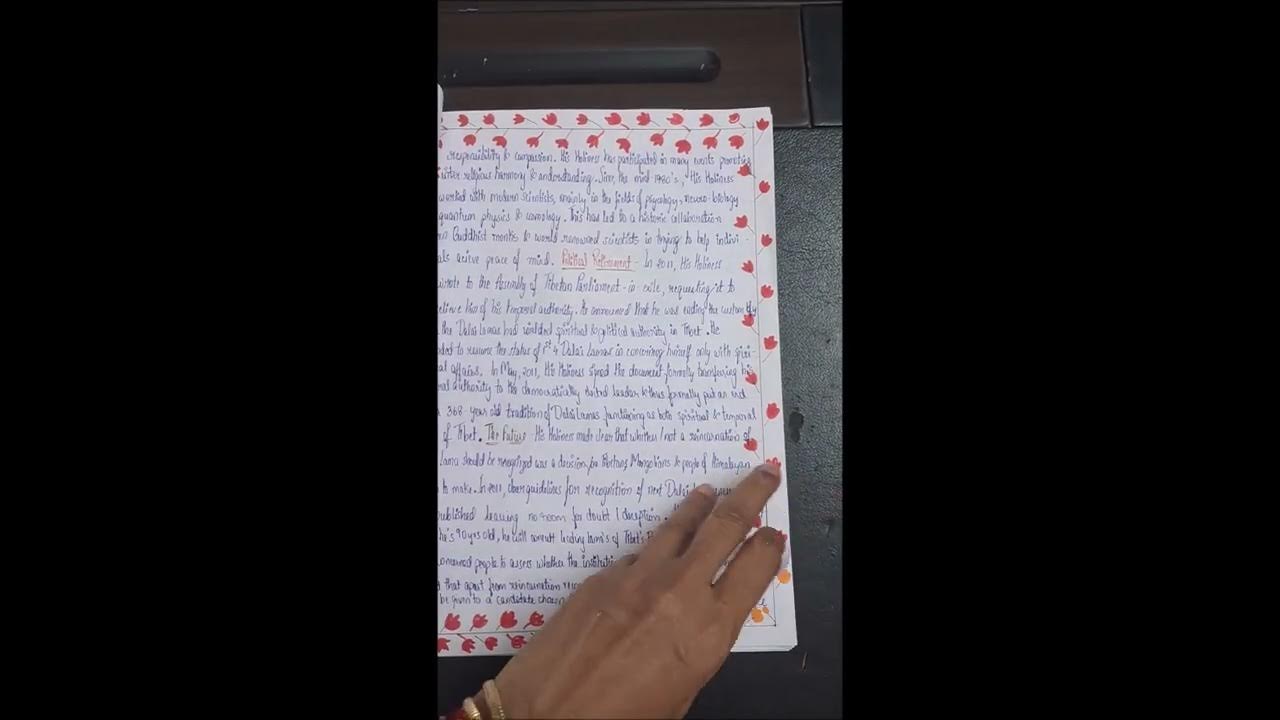 responsibility & compassion. His Holiness has participated in many events promoting
inter religious harmony & understanding. Since the mid-1980's, His Holiness
worked with modern scientists, mainly in the fields of psycology, neuro-biology
quantum physics & cosmology. This has led to a historic collaboration
Buddhist monks & world renowned scientists in trying to help indivi-
als acieve peace of mind. Political Retirement - In 2011, His Holiness
wrote to the Assembly of Tibetan Parliament-in exile, requesting it to
elieve him of his temporal authority. He announced that he was ending the custom by
the Dalai Lamas had wielded spiritual & political authority in Tibet. He
ded to resume the status of 1st 4 Dalai Lamas in concering himself only with spiri-
al affairs. In May, 2011, His Holiness signed the document formally transferring his
ral authority to the democratically elected leader & thus formally put an end
368-year old tradition of Dalai Lamas functioning as both spiritual & temporal
of Tibet. The Future - His Holiness made clear that whether / not a reincarnation of
Lama should be recognized was a decision for Tibetans, Mongolians & people of Himalayan
to make. In 2011, clear guidelines for recognition of next Dalai
ublished leaving no room for doubt / deception.
he's 90 yrs old, he will consult leading lama's of Tibet's
oncerned people to assess whether the institution
that apart from reincarnation
be given to a candidate chosen